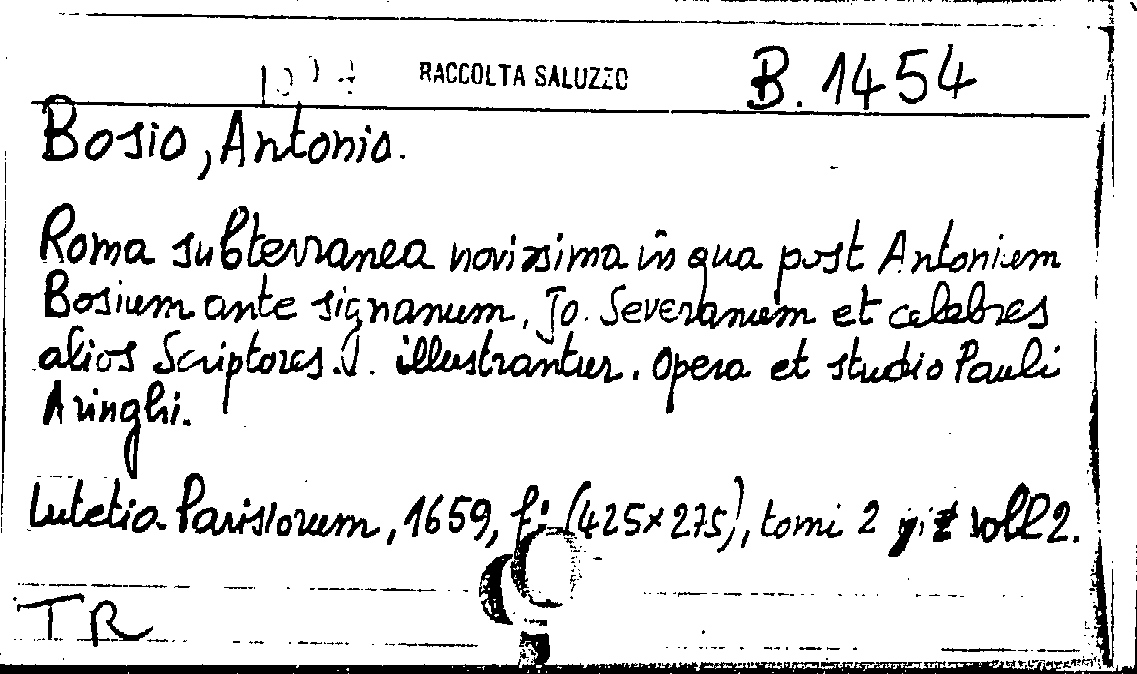 RACCOLTA SALUZZO B. 1454
Bosio, Antonio.
Roma subterranea novissima in qua post Antonium
Bosium ante signanum, Jo. Severanum et celebres
alios Scriptores. illustrantur. Opera et studio Pauli
Aringhi.
Lutetia Parisiorum, 1659, f: (425x275), tomi 2 voll 2.
TR